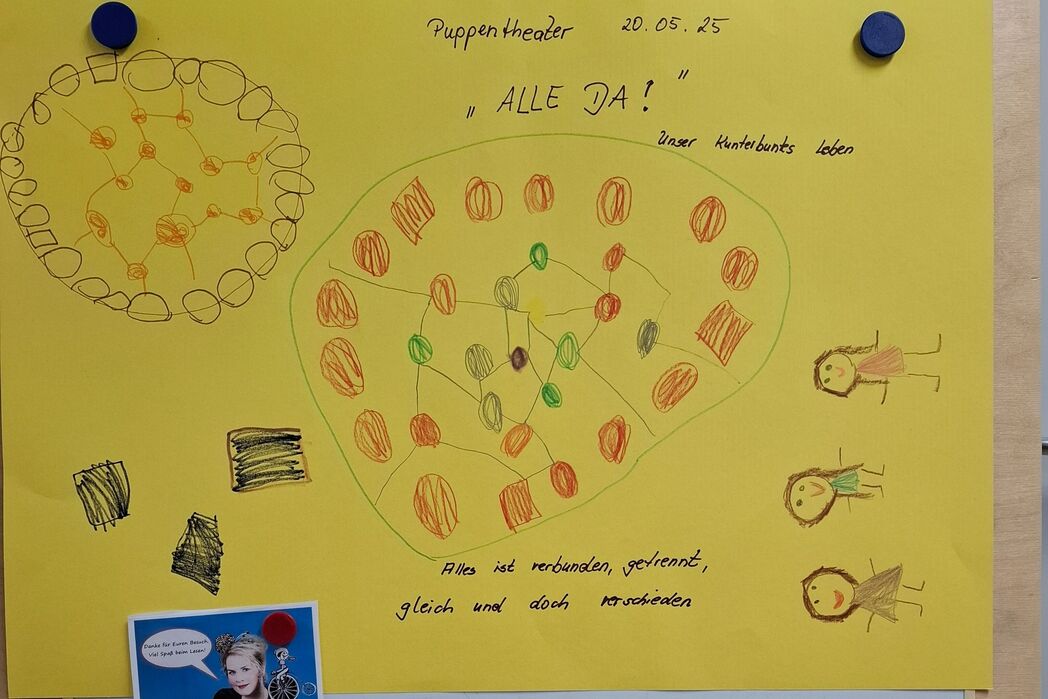 Puppentheater 20.05.25
„ALLE DA!"
Unser Kunterbunts Leben
Alles ist verbunden, getrennt,
gleich und doch verschieden
Danke für Euren Besuch
Viel Spaß beim Lesen!